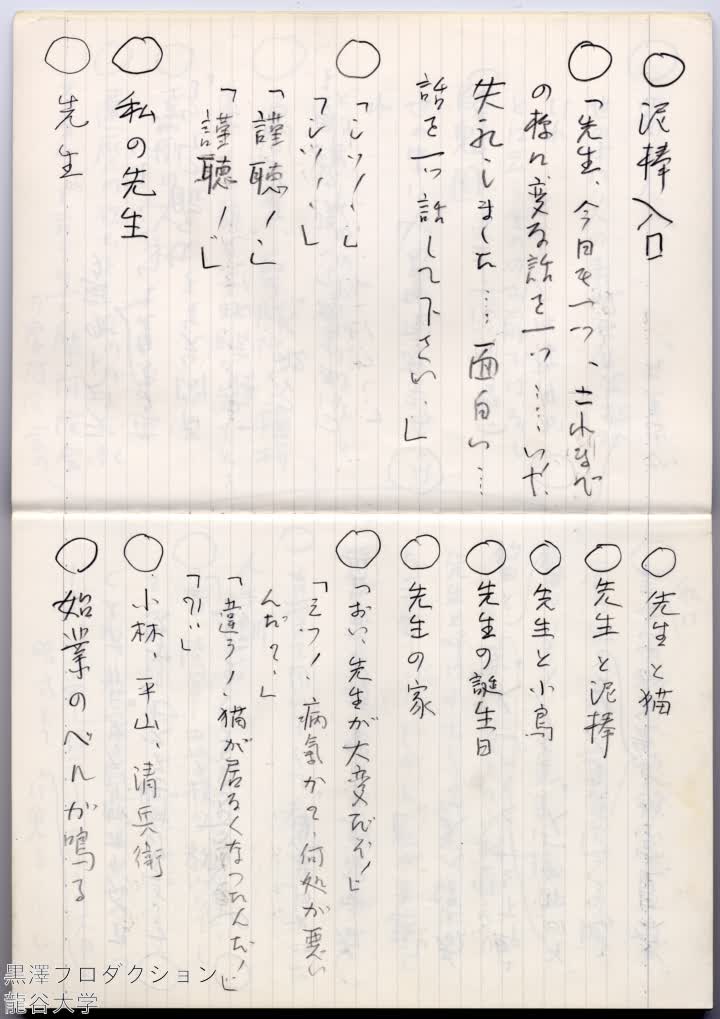 ○ 泥棒入口
○ 「先生、今日も一つ、これまで
の様に変な話を一つ……いや、
失礼しました……面白い…
話を一つ話して下さい。」
○ 「シッ！」
「シッ！」
「謹聴！」
「謹聴！」
○ 私の先生
○ 先生
○ 先生と猫
○ 先生と泥棒
○ 先生と小鳥
○ 先生の誕生日
○ 先生の家
○ 「おい、先生が大変だぞ！」
「えッ！病氣かで、何処が悪い
んだで、」
「違う！猫が居なくなつたんだ！」
○ 小林、平山、清兵衛
○ 始業のベルが鳴る
黒澤プロダクション
龍谷大学